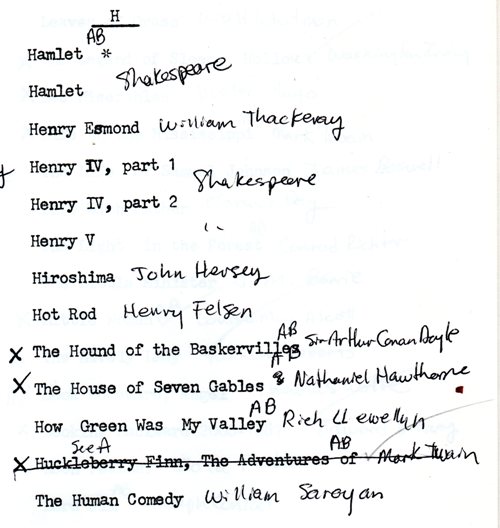 H
AB
Hamlet *
Hamlet Shakespeare
Henry Esmond William Thackeray
Henry IV, part 1
Shakespeare
Henry IV, part 2
Henry V "
Hiroshima John Hersey
Hot Rod Henry Felsen
X The Hound of the Baskervilles AB Sir Arthur Conan Doyle
X The House of Seven Gables AB Nathaniel Hawthorne
How Green Was My Valley AB Rich Llewellyn
See A
X Huckleberry Finn, The Adventures of AB Mark Twain
The Human Comedy William Saroyan